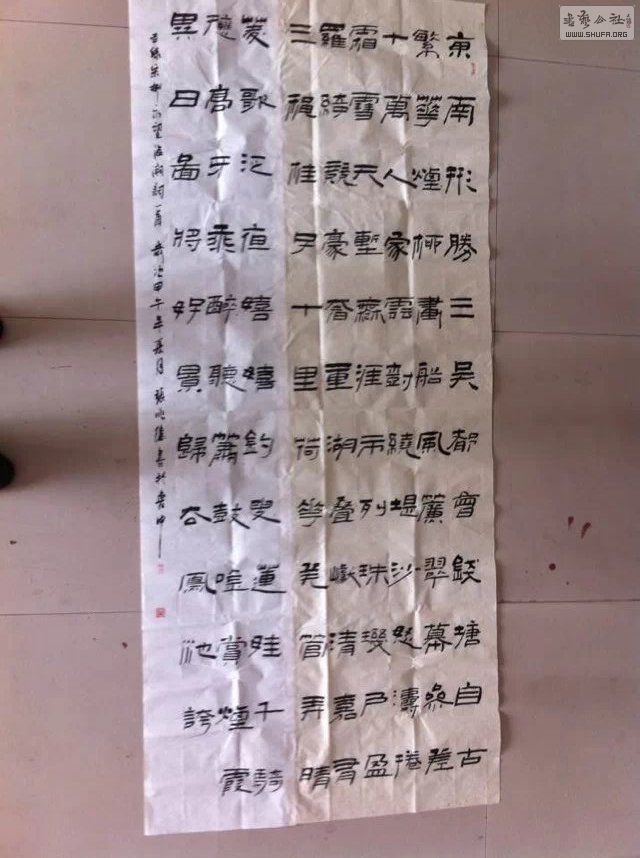 東南形勝三吳都會錢塘自古
繁華煙柳畫船風簾翠幕參差
十萬人家雲對繞堤沙怒濤捲
霜雪天塹無涯市列珠璣戶盈
羅綺競豪奢重湖疊巘清嘉有
三秋桂子十里荷花羌管弄晴
菱歌泛夜嬉嬉釣叟蓮娃千騎
擁高牙乘醉聽簫鼓唯賞煙霞
異日圖將好景歸去鳳池誇
柳永望海潮詞一首 歲次甲午年夏月 張書於魯中
书艺公社
WWW.SHUFA.ORG